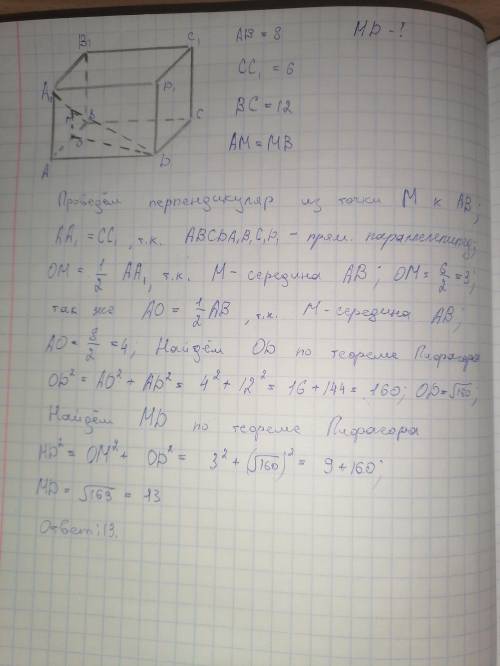 MD - ?
AB = 8
CC₁ = 6
BC = 12
AM = MB
B₁
C₁
A₁
D₁
B
C
A
D
Проведём перпендикуляр из точки M к AB;
AA₁ = CC₁, т.к. ABCDA₁B₁C₁D₁ - прям. параллелепипед;
OM = 1/2 AA₁, т.к. M - середина AB; OM = 6/2 = 3;
так же AO = 1/2 AB, т.к. M - середина AB;
AO = 8/2 = 4, Найдём OD по теореме Пифагора
OD² = AO² + AD² = 4² + 12² = 16 + 144 = 160; OD = √160;
Найдём MD по теореме Пифагора
MD² = OM² + OD² = 3² + (√160)² = 9 + 160;
MD = √169 = 13
Ответ: 13.